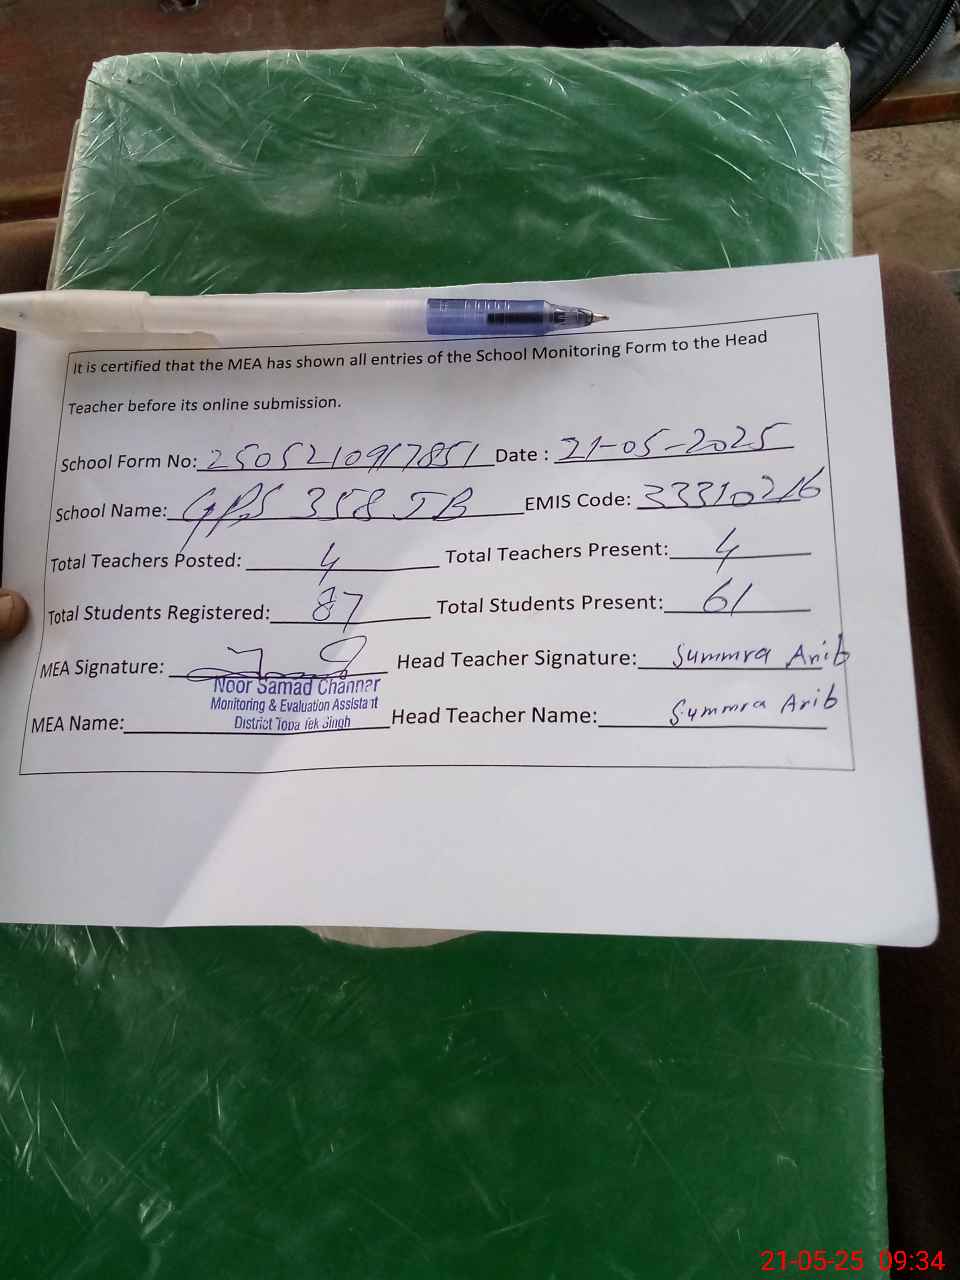 It is certified that the MEA has shown all entries of the School Monitoring Form to the Head
Teacher before its online submission.
School Form No: 2505210917851 Date : 21-05-2025
School Name: GPS 358 JB EMIS Code: 33310216
Total Teachers Posted: 4 Total Teachers Present: 4
Total Students Registered: 87 Total Students Present: 61
MEA Signature: Head Teacher Signature: Summra Arib
Noor Samad Channar
Monitoring & Evaluation Assistant
District Toba Tek Singh
MEA Name: Head Teacher Name: Summra Arib
21-05-25 09:34